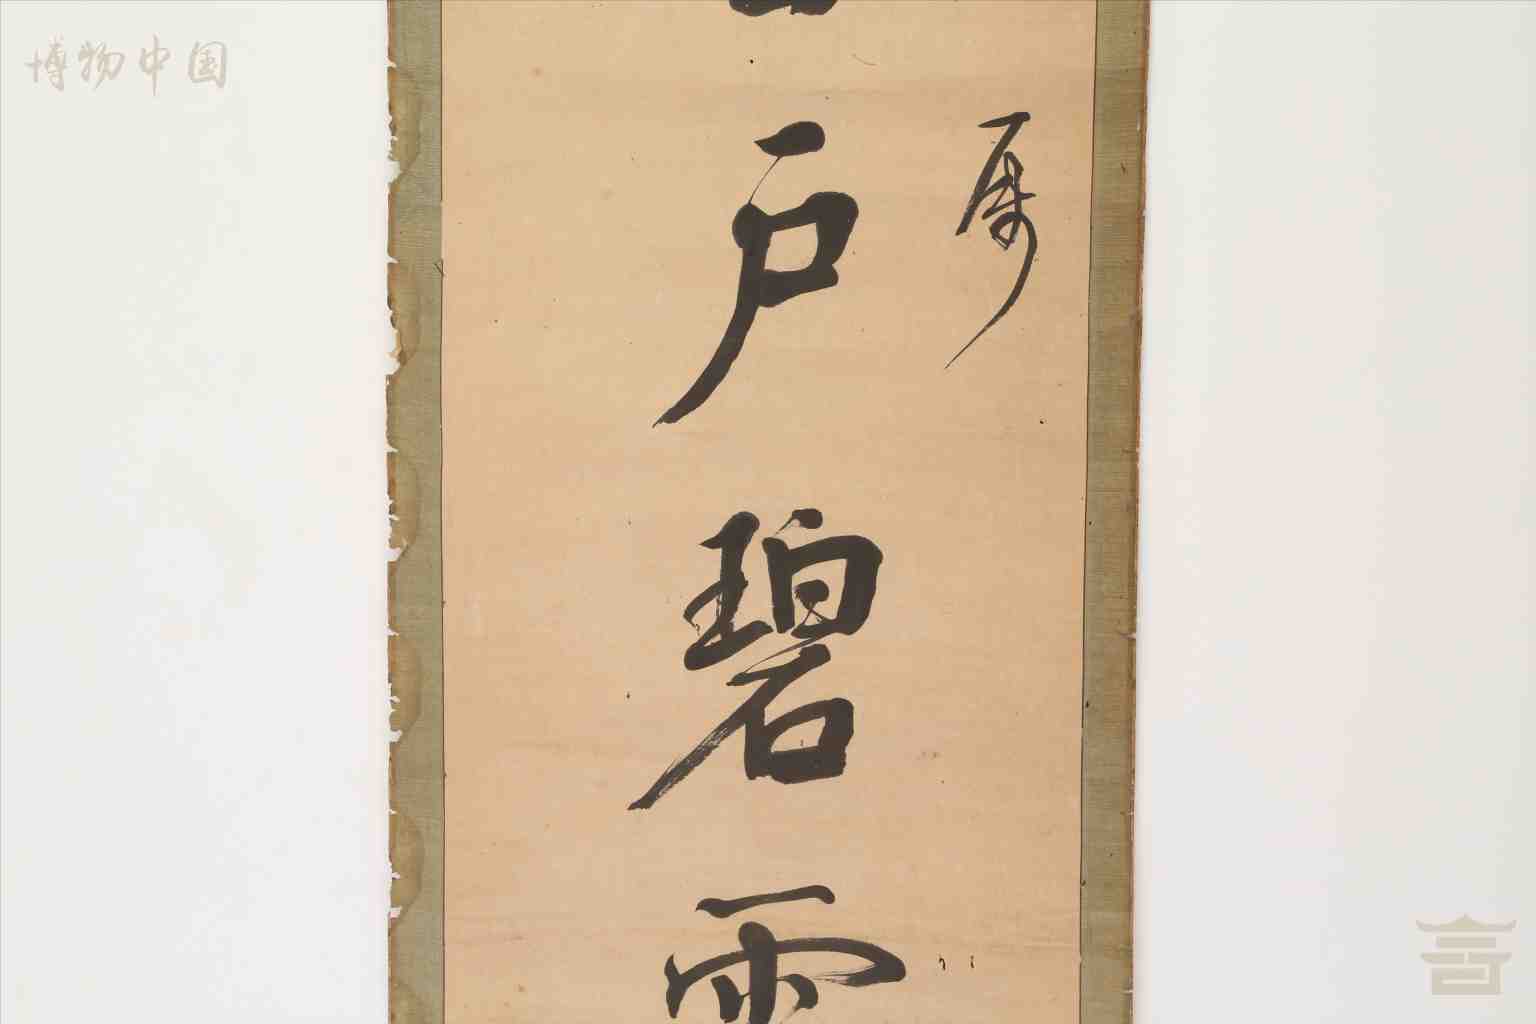 博物中国
属
户碧